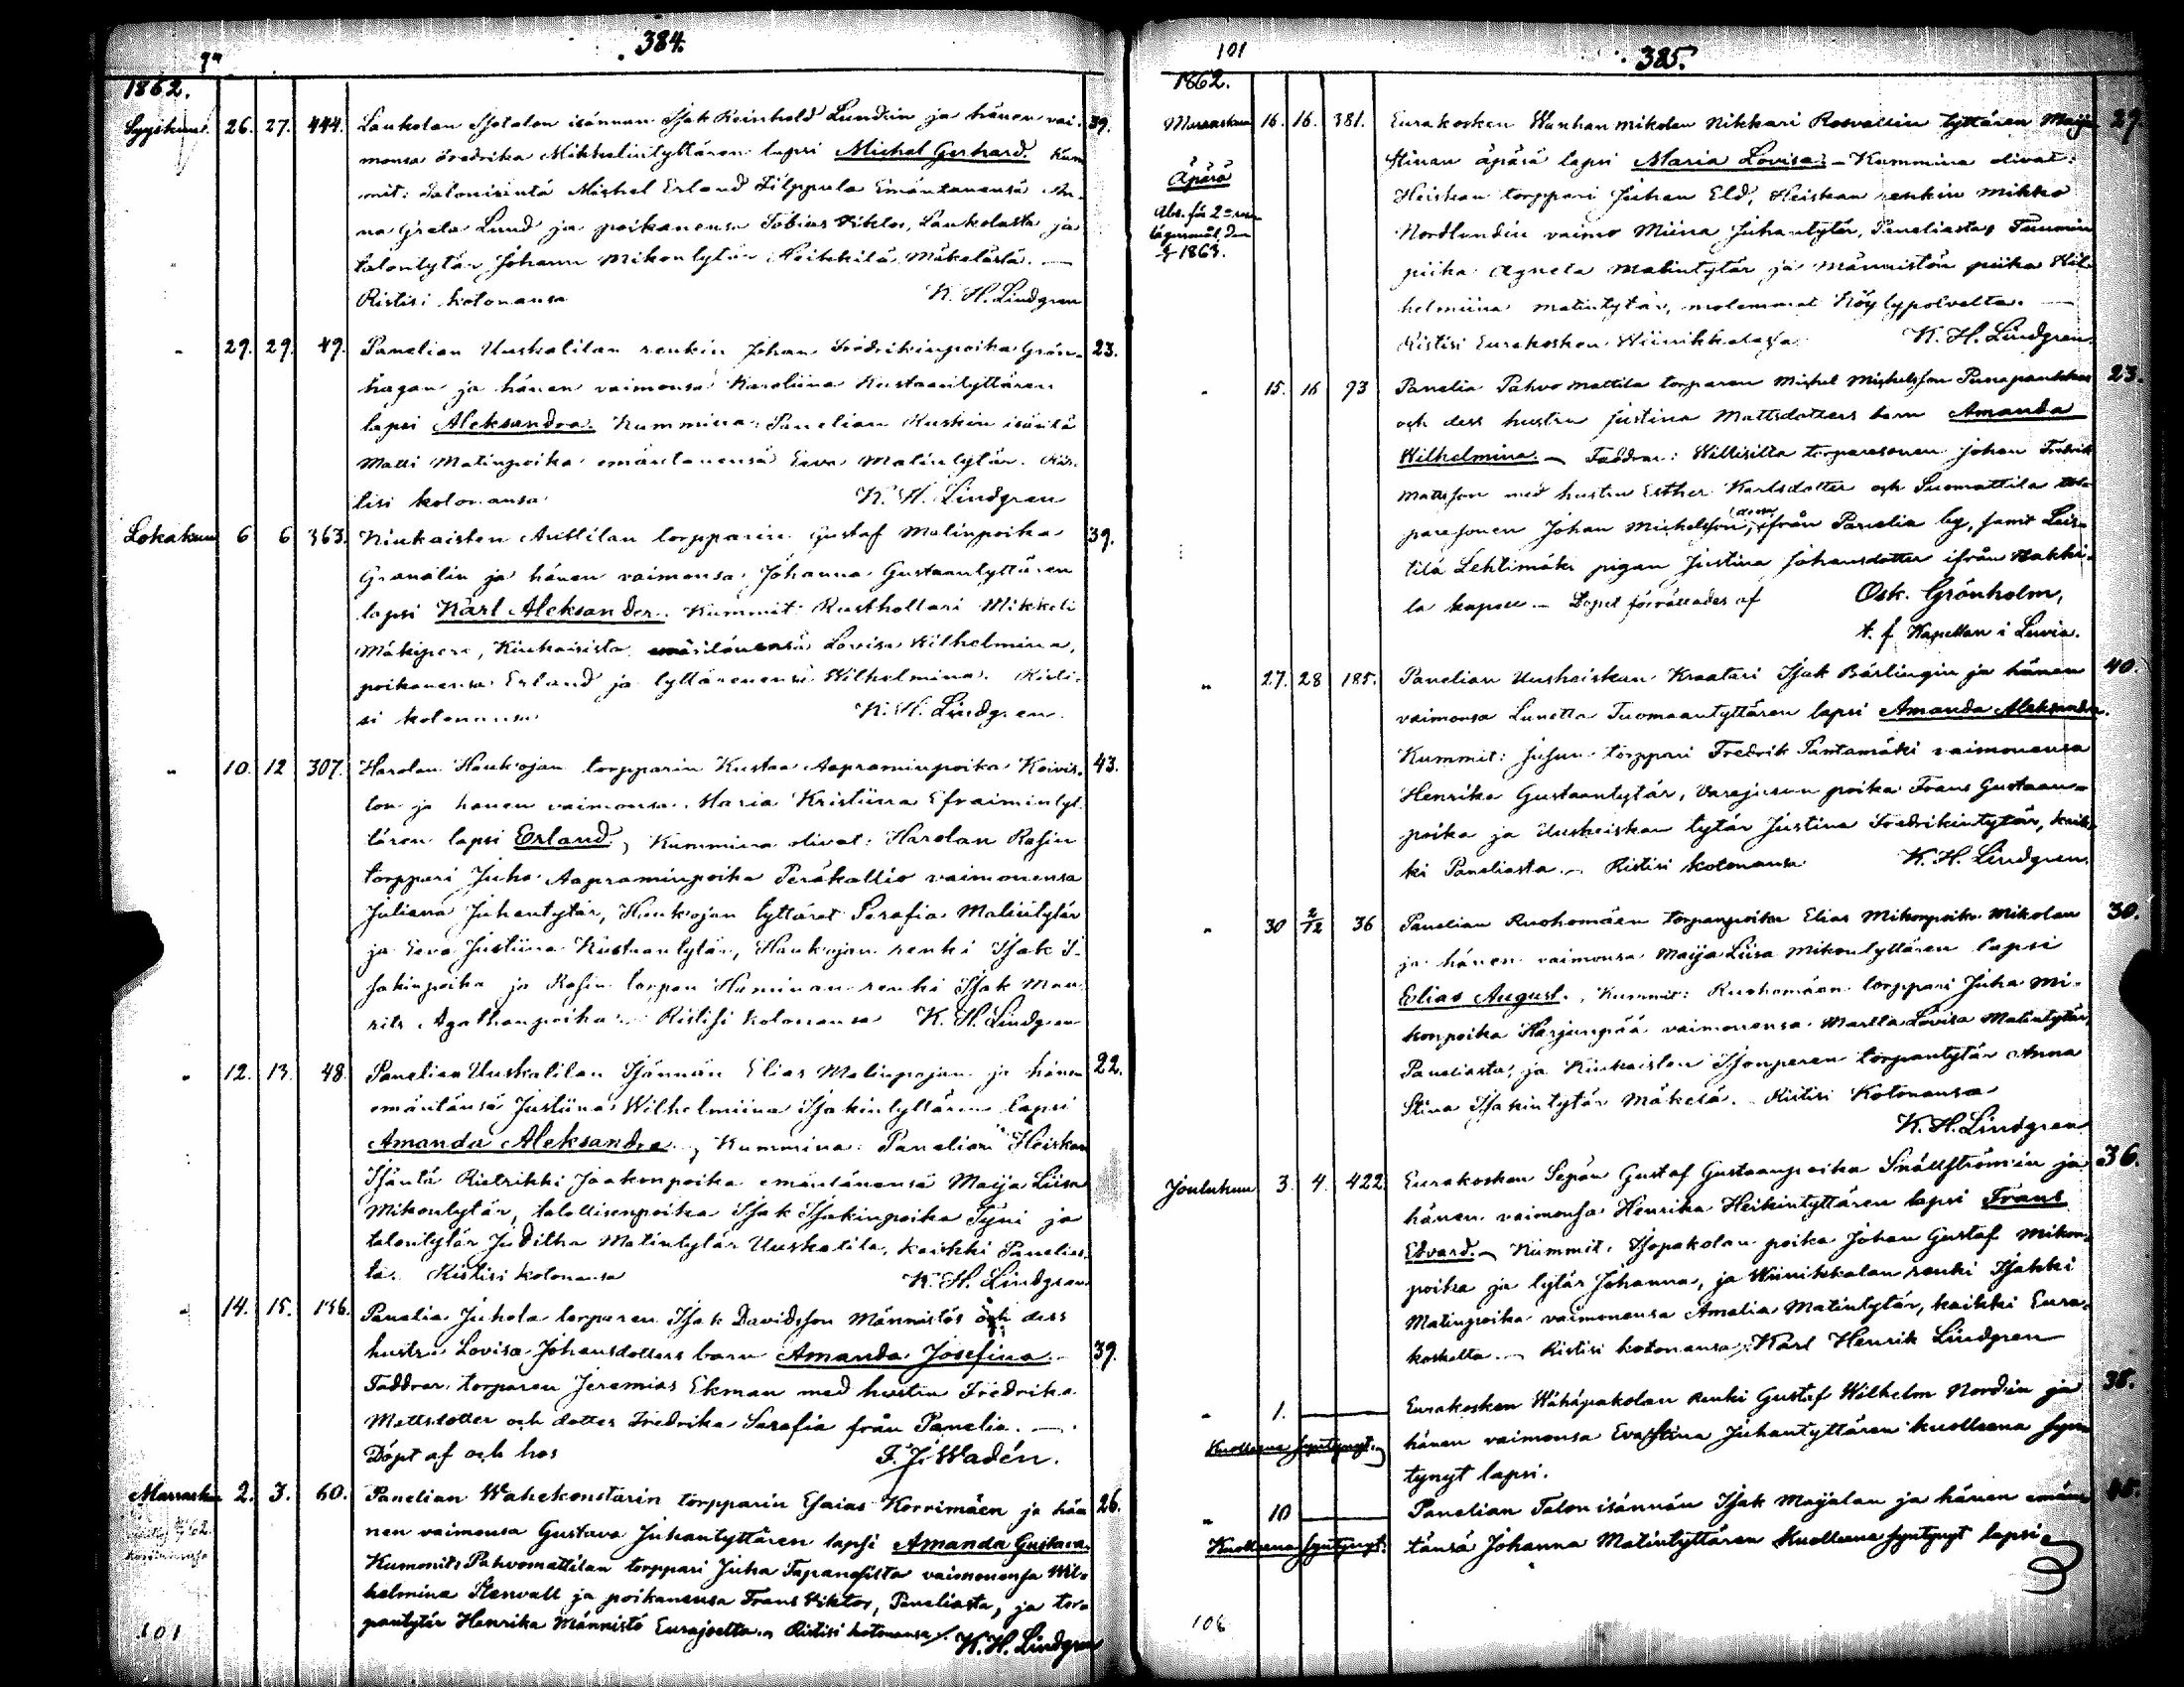 384.
97
1862.
Syyskuu 26. 27. 444. Laukolan Isotalon isännän Isak Reinhold Lundin ja hänen vai- 39.
monsa Fredrika Mikkelintyttären lapsi Michel Gerhard. Kum
mit: Talonisäntä Michel Erland Filppula Emäntänensä An-
na Greta Lund ja poikanensa Tobias Viktor, Laukolasta ja
talontytär Johanna Mikontytär Heikkilä Mäkelästä. —
Ristisi kotonansa K. H. Lindgren
" 29. 29. 49. Panelian Uuskalilan renkin Johan Fredrikinpoika Grön- 23.
hagan ja hänen vaimonsa Karoliina Kustaantyttären
lapsi Aleksandra. Kummina: Panelian Kuskin isäntä
Matti Matinpoika emäntänensä Eeva Matintytär. Ris-
tisi kotonansa K. H. Lindgren
Lokakuu 6 6 363. Kiukaisten Anttilan torpparin Gustaf Matinpoika 39.
Granalin ja hänen vaimonsa Johanna Gustaantyttären
lapsi Karl Aleksander. Kummit: Rusthollari Mikkeli
Mäkipere, Kiukaisista emäntänensä Lovisa Wilhelmina,
poikanensa Erland ja tyttärenensä Wilhelmina. Risti-
si kotonansa K. H. Lindgren.
" 10. 12 307. Harolan Haukojan torpparin Kustaa Aapraminpoika Koivis- 43.
ton ja hänen vaimonsa Maria Kristiina Efraimintyt-
tären lapsi Erland, Kummina olivat: Harolan Rasin
torppari Juha Aapraminpoika Peräkallio vaimonensa
Juliana Juhantytär, Haukojan tyttäret Serafia Matintytär
ja Eeva Justiina Kustaantytär, Haukojan renki Isak I-
sakinpoika ja Rasin torpan Huminan renki Isak Mau-
rits Agathanpoika. Ristisi kotonansa K. H. Lindgren
" 12. 13. 48. Panelian Uuskalilan Isännän Elias Matinpojan ja hänen 22.
emäntänsä Justiina Wilhelmiina Isakintyttären lapsi
Amanda Aleksandra, Kummina: Panelian Heiskan
Isäntä Rietrikki Jaakonpoika emäntänensä Maija Liisa
Mikontytär, talollisenpoika Isak Isakinpoika Tyni ja
talontytär Juditha Matintytär Uuskalila, kaikki Panelias-
ta. Ristisi kotonansa K. H. Lindgren
" 14. 15. 156. Panelia Juhola torparen Isak Davidsson Männistös och dess
hustru Lovisa Johansdotters barn Amanda Josefina. 39.
Faddrar: torparen Jeremias Ekman med hustru Fredrika
Mattsdotter och dotter Fredrika Serafia från Panelia. —
Döpt af och hos F. J. Wadén.
Marraskuu 2. 3. 60. Panelian Wahekonstarin torpparin Esaias Korrimäen ja hä- 26.
nen vaimonsa Gustava Juhantyttären lapsi Amanda Gustava.
Kummit: Pahvomattilan torppari Juha Tapanasilta vaimonensa Wil-
helmina Stenvall ja poikanensa Frans Viktor, Paneliasta, ja tor-
pantytär Henrika Männistö Eurajoelta. Ristisi kotonansa K. H. Lindgren
101
101
385.
1862.
Marraskuu 16. 16. 381. Eurakosken Wanhan Mikolan Nikkari Rosvallin tyttären Maija 29
Stinan äpärä lapsi Maria Lovisa. – Kummina olivat:
Äpärä
Heiskan torppari Juhan Eld, Heiskan renkin Mikko
Nordlundin vaimo Miina Juhantytär, Paneliasta, Tuomin
1863.
piika Agneta Matintytär ja Männistön piika Wil-
helmiina Matintytär, molemmat Köylypolvelta. —
Ristisi Eurakosken Wiinikkalassa K. H. Lindgren
" 15. 16 73 Panelia Pahvo Mattila torparen Michel Michelsson Punapaukkas 23.
och dess hustru Justina Mattsdotters barn Amanda
Wilhelmina. – Faddrar: Willisilta torparesonen Johan Fredrik
Mattsson med hustru Esther Karlsdotter och Suomattila tor-
paresonen Johan Michelsson, ifrån Panelia by, samt Leis-
tilä Lehtimäki pigan Justina Johansdotter ifrån Nakki-
la kapell. – Dopet förrättades af Osk. Grönholm,
t. f. Kapellan i Luvia.
" 27. 28 185. Panelian Uusheiskan Kraatari Isak Bärlingin ja hänen 40.
vaimonsa Lunetta Tuomaantyttären lapsi Amanda Aleksandra.
Kummit: Jusun torppari Fredrik Santamäki vaimonensa
Henrika Gustaantytär, Varajusun poika Frans Gustaan-
poika ja Uusheiskan tytär Justina Fredrikintytär, kaik-
ki Paneliasta. – Ristisi kotonansa K. H. Lindgren
" 30 2/12 36 Panelian Ruohomäen torpanpoika Elias Mikonpoika Mikolan 30.
ja hänen vaimonsa Maija Liisa Mikontyttären lapsi
Elias August. Kummit: Ruohomäen torppari Juha Mi-
konpoika Harjunpää vaimonensa Martta Lovisa Matintytär,
Paneliasta, ja Kiukaisten Isonperen torpantytär Anna
Stina Isakintytär Mäkelä. Ristisi Kotonansa
K. H. Lindgren
Joulukuu 3. 4. 422. Eurakosken Sepän Gustaf Gustaanpoika Snällströmin ja 36.
hänen vaimonsa Henrika Heikintyttären lapsi Frans
Edvard. – Kummit: Isopakolan poika Johan Gustaf Mikon-
poika ja tytär Johanna, ja Wiinikkalan renki Isakki
Matinpoika vaimonensa Amalia Matintytär, kaikki Eura-
koskelta. – Ristisi kotonansa: Karl Henrik Lindgren
" 1. — Eurakosken Wähäpakolan Renki Gustaf Wilhelm Nordin ja 38.
Kuolleena syntynyt. hänen vaimonsa Eva Stina Juhantyttären kuolleena syn-
tynyt lapsi.
" 10 — Panelian Talon isännän Isak Maijalan ja hänen emän- 45.
Kuolleena syntynyt. tänsä Johanna Matintyttären Kuolleena syntynyt lapsi
106